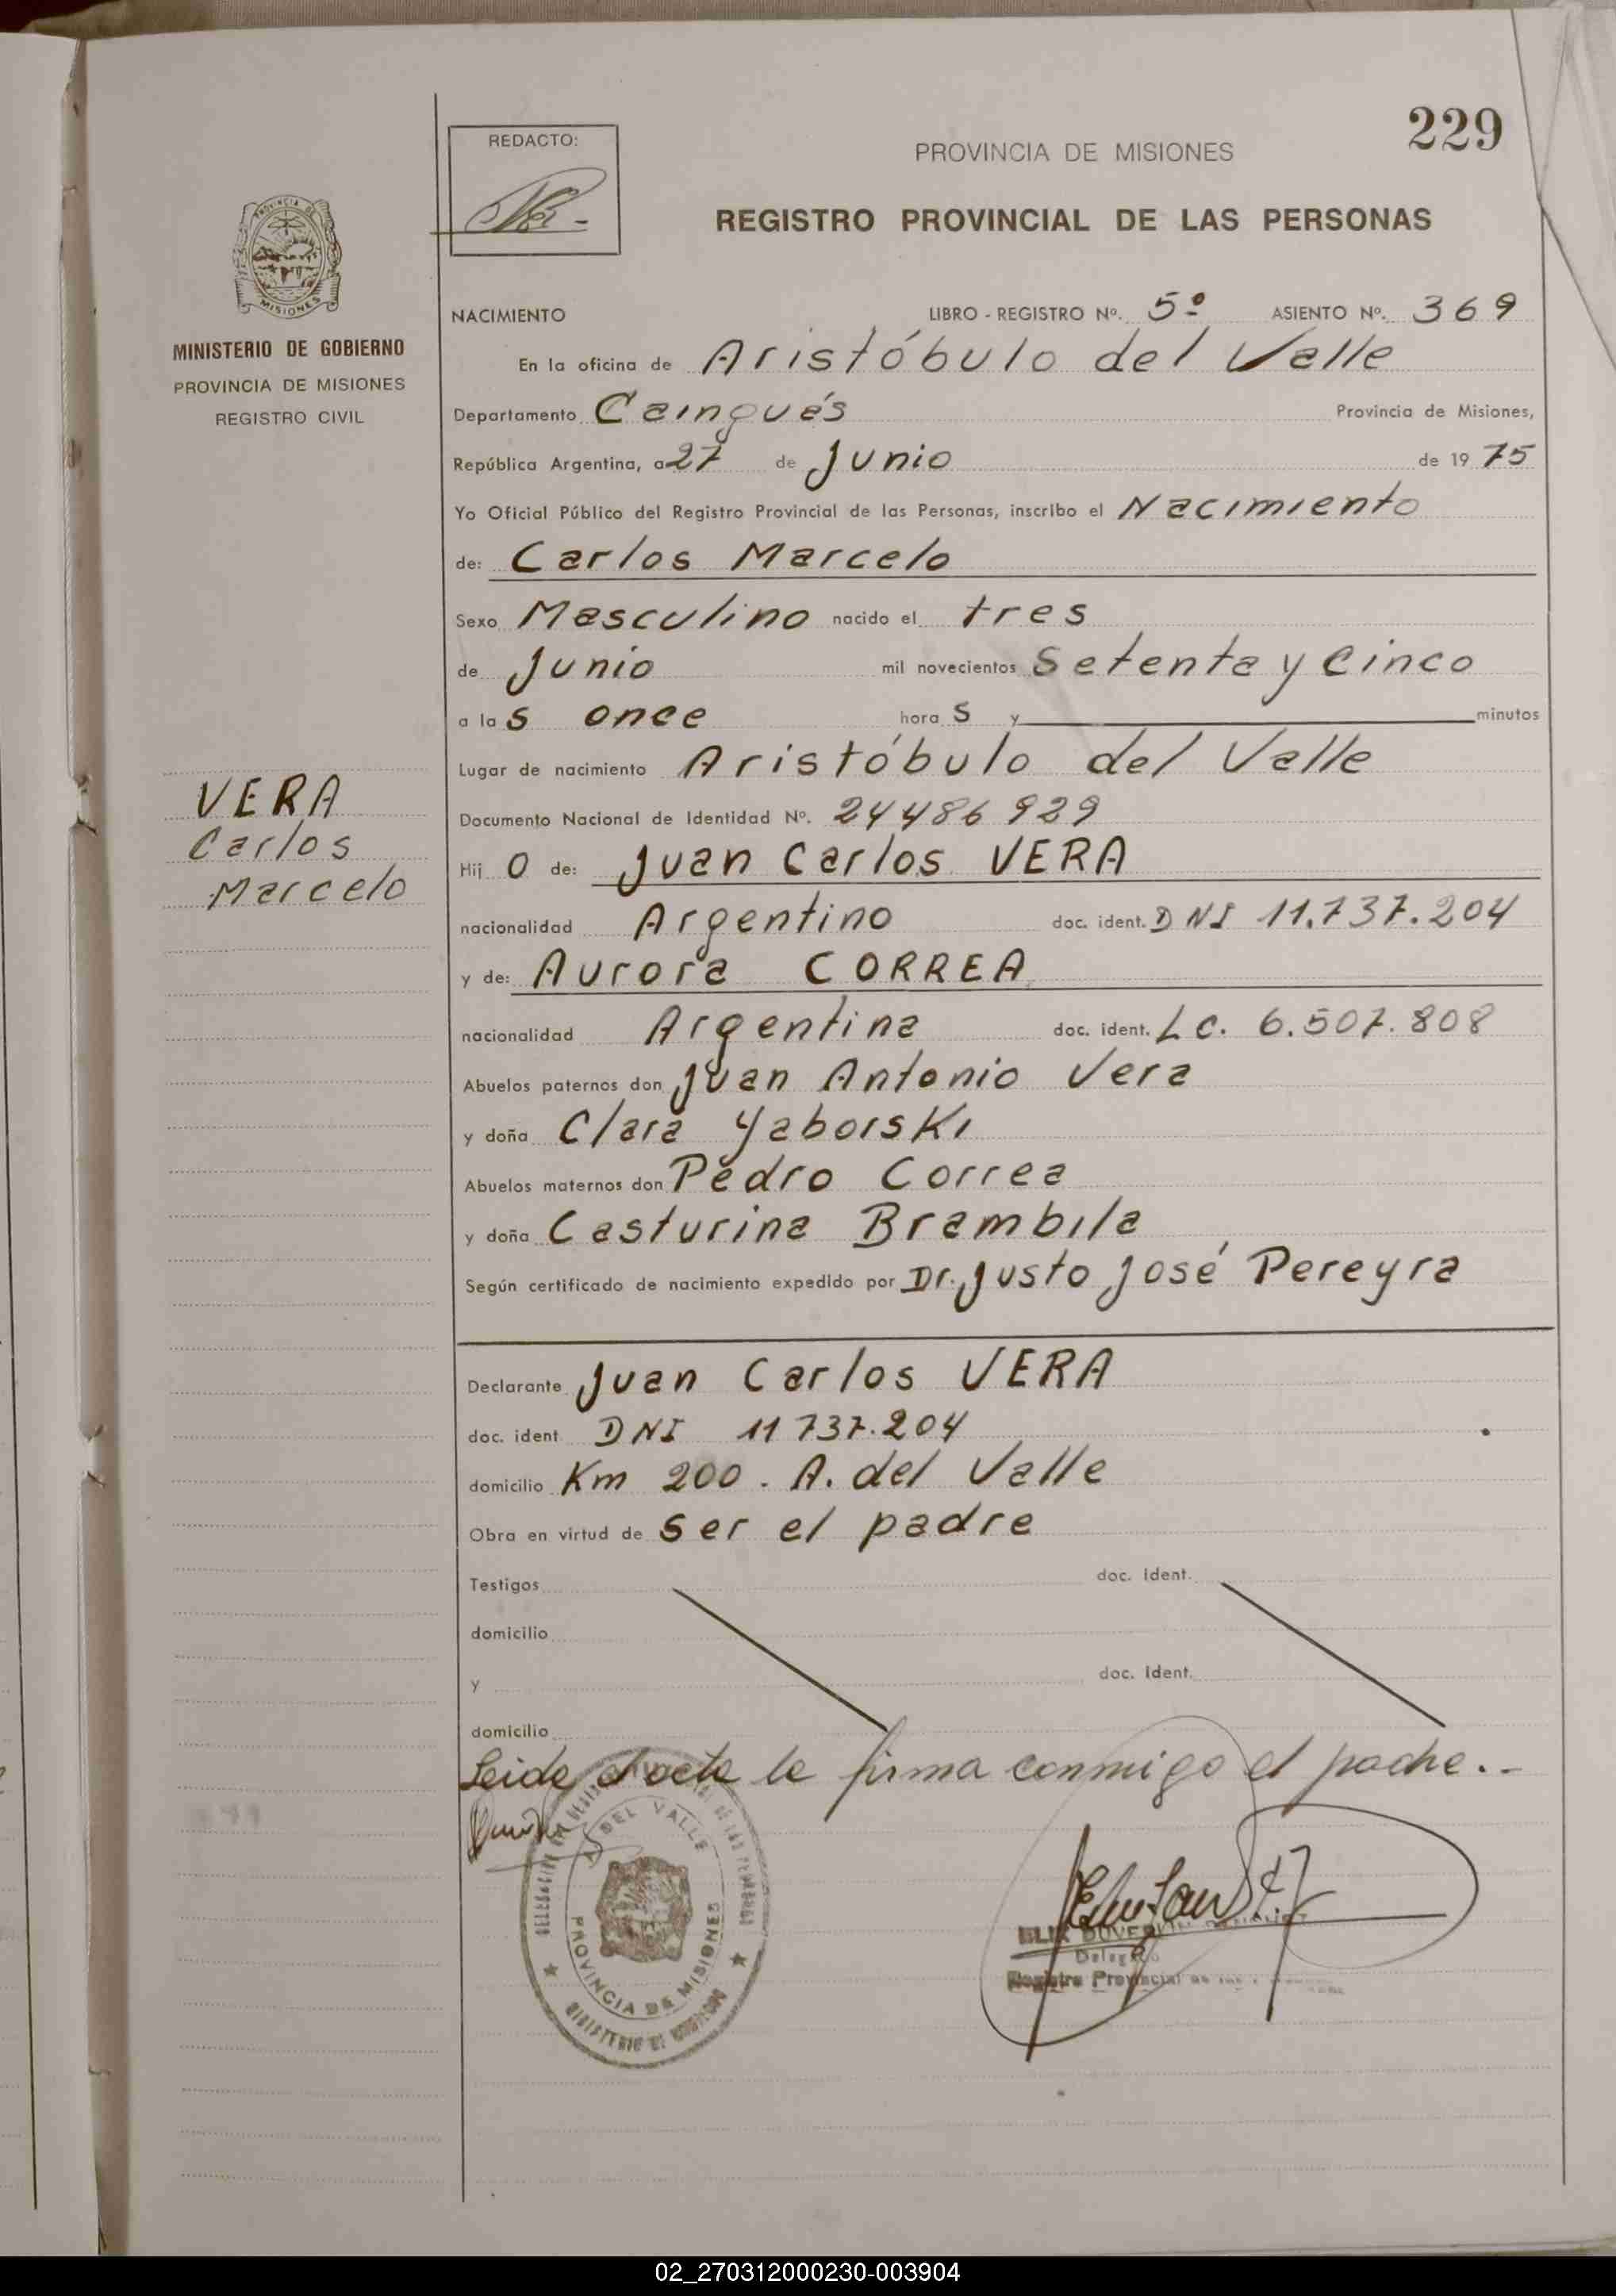 229
REDACTO:
PROVINCIA DE MISIONES
REGISTRO PROVINCIAL DE LAS PERSONAS
PROVINCIA DE
MISIONES
MINISTERIO DE GOBIERNO
PROVINCIA DE MISIONES
REGISTRO CIVIL
NACIMIENTO LIBRO - REGISTRO Nº. 5º ASIENTO Nº. 369
En la oficina de Aristóbulo del Valle
Departamento Cainguás Provincia de Misiones,
República Argentina, a 27 de Junio de 19 75
Yo Oficial Público del Registro Provincial de las Personas, inscribo el Nacimiento
de: Carlos Marcelo
Sexo Masculino nacido el tres
de Junio mil novecientos Setenta y Cinco
a las once horas y minutos
Lugar de nacimiento Aristóbulo del Valle
VERA
Carlos
Marcelo
Documento Nacional de Identidad Nº. 24486929
Hijo de: Juan Carlos VERA
nacionalidad Argentino doc. ident. DNI 11.737.204
y de: Aurora CORREA
nacionalidad Argentina doc. ident. LC. 6.507.808
Abuelos paternos don Juan Antonio Vera
y doña Clara Yaborski
Abuelos maternos don Pedro Correa
y doña Casturina Brambila
Según certificado de nacimiento expedido por Dr. Justo José Pereyra
Declarante Juan Carlos VERA
doc. ident DNI 11 737.204
domicilio Km 200. A. del Valle
Obra en virtud de ser el padre
Testigos doc. ident.
domicilio
y doc. ident.
domicilio
Leida el acta la firma conmigo el padre.-
A. DEL VALLE
PROVINCIA DE MISIONES
MINISTERIO DE GOBIERNO
Delegado
Registro Provincial de las
02_270312000230-003904